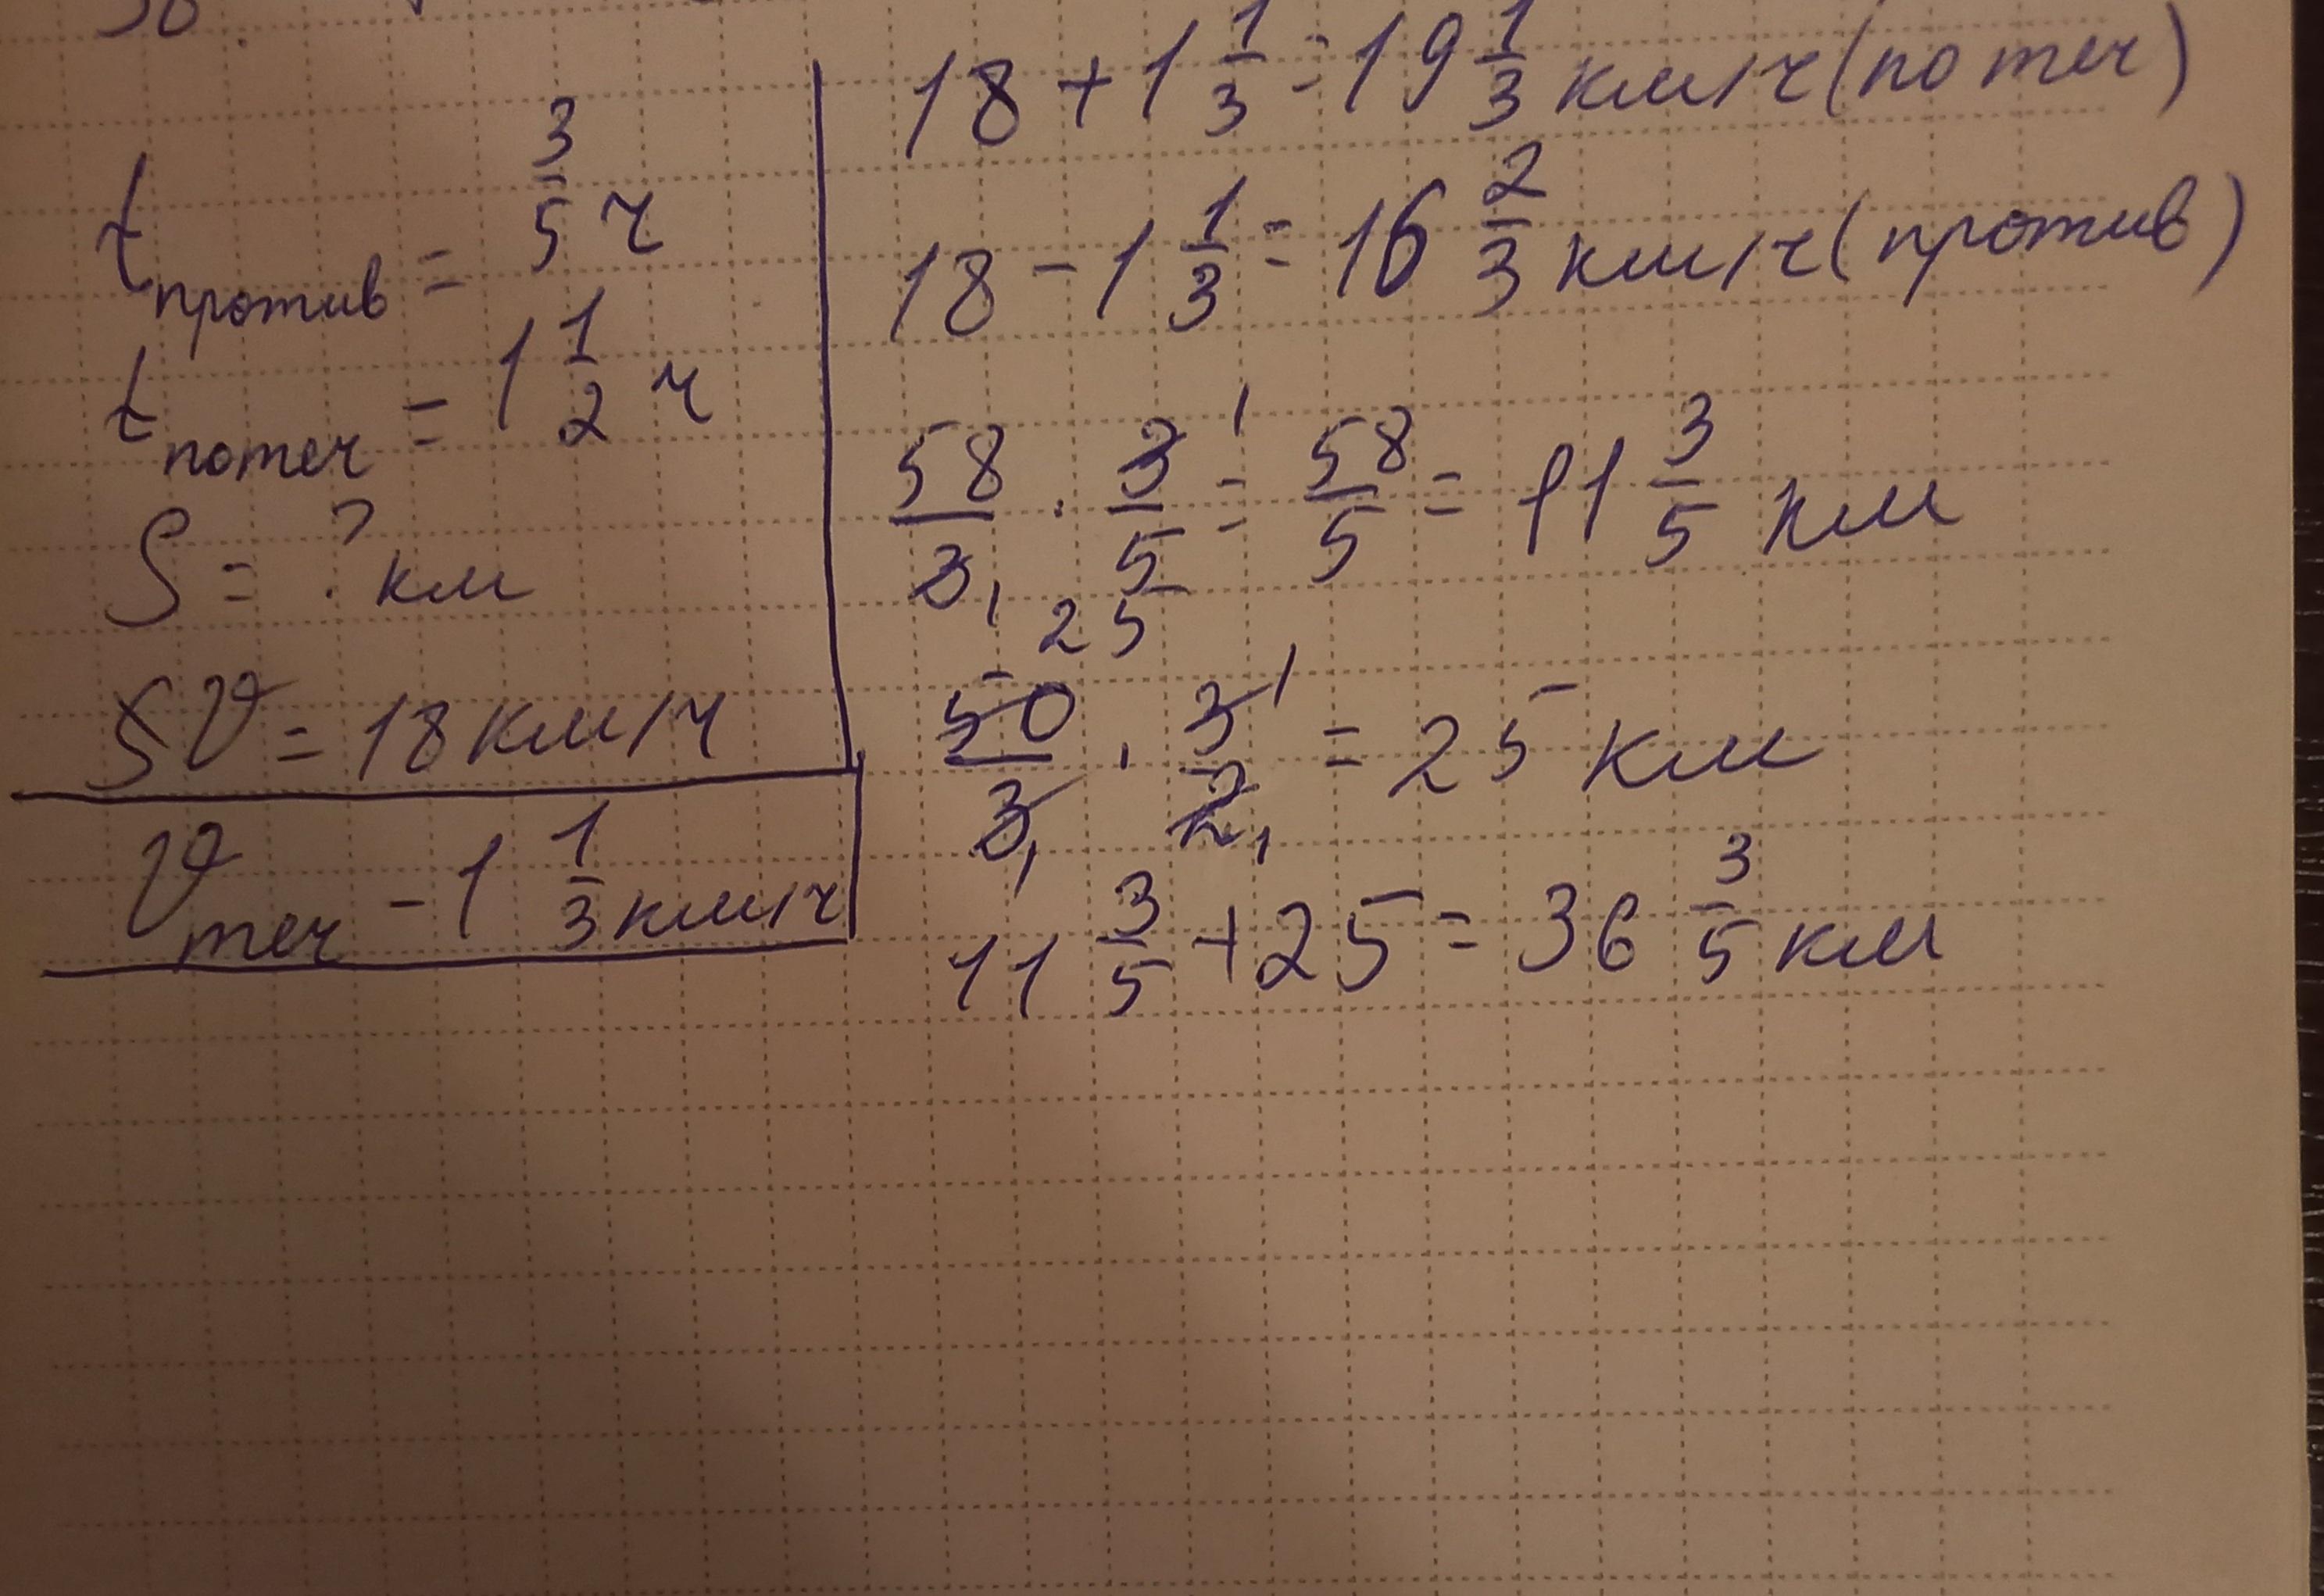 t против = 3/5 ч
t по теч = 1 1/2 ч
S = ? км
V = 18 км/ч
V теч - 1 1/3 км/ч
18 + 1 1/3 = 19 1/3 км/ч (по теч)
18 - 1 1/3 = 16 2/3 км/ч (против)
58/3 1 · 3/5 1 = 58/5 = 11 3/5 км
25
50/3 1 · 3/2 1 1 = 25 км
11 3/5 + 25 = 36 3/5 км